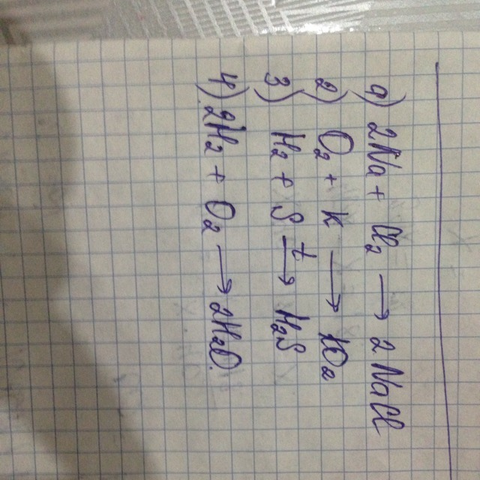 а) 2Na + Cl₂ → 2NaCl
2) O₂ + K → KO₂
3) H₂ + S —t→ H₂S
4) 2H₂ + O₂ → 2H₂O.